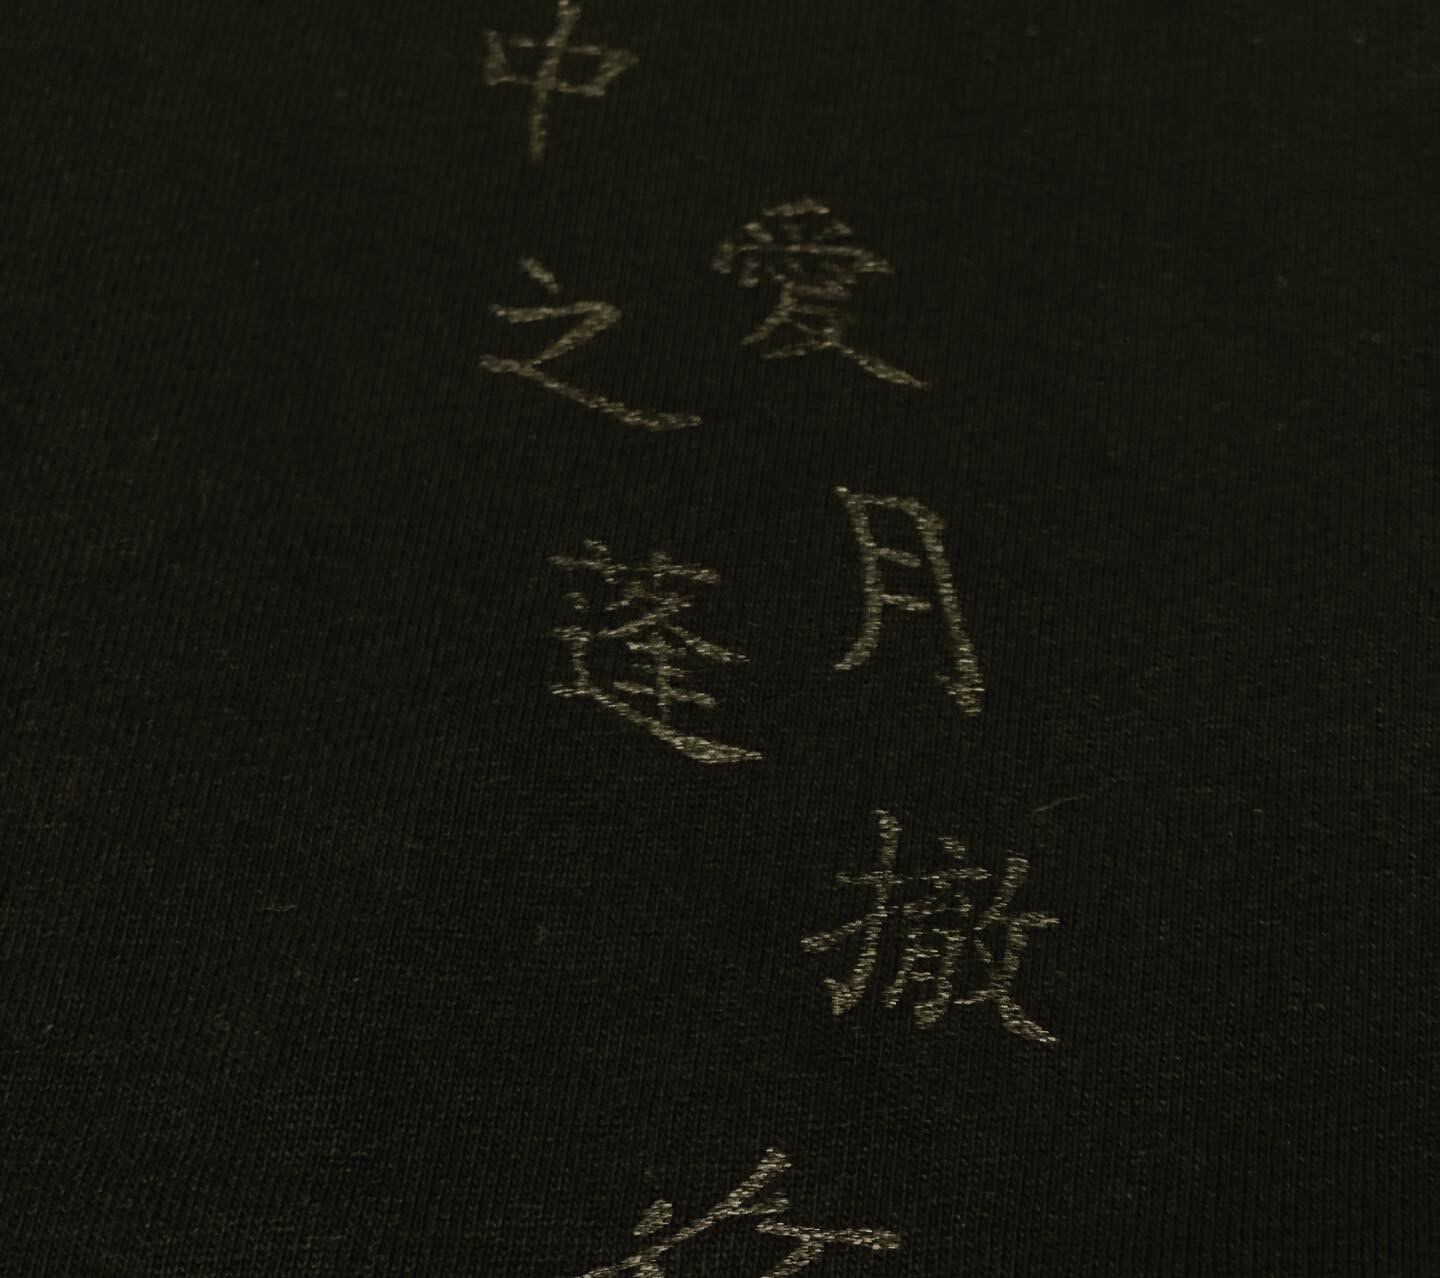 愛月撤
中之蓬